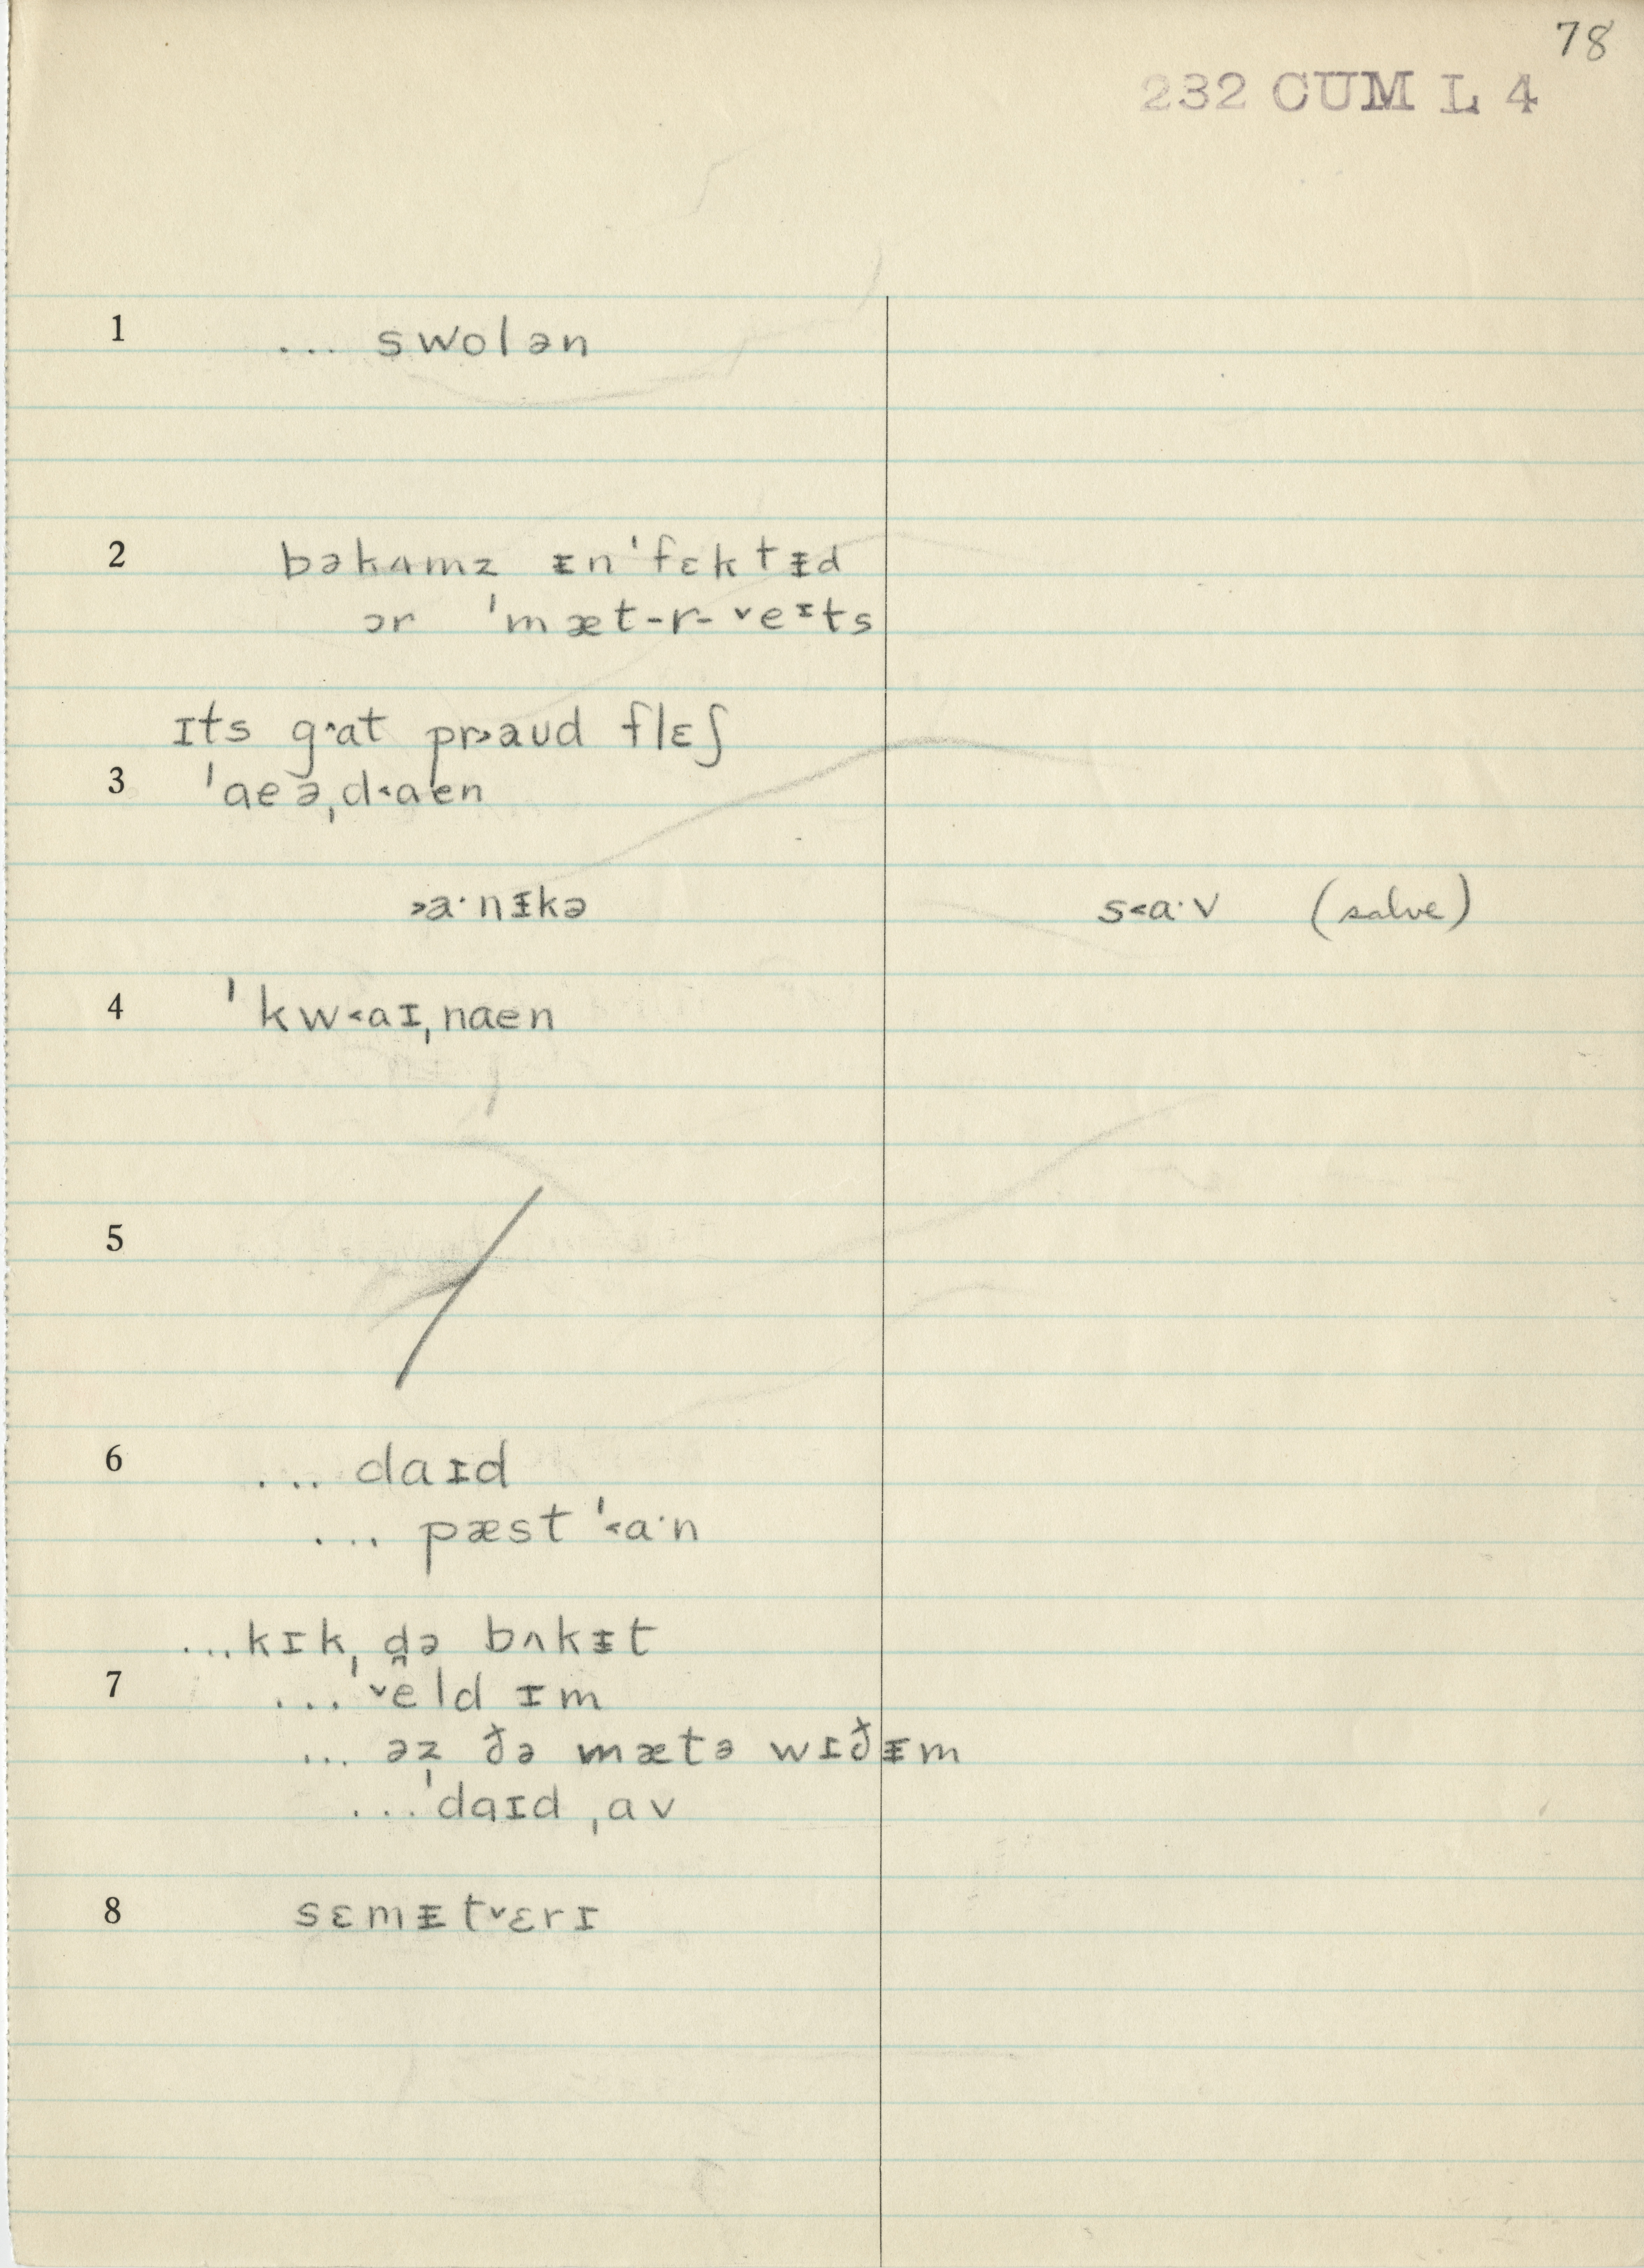 78
232 CUM L 4
1 ... swolən
2 bəkʌmz ᵻn'fɛktᵻd
ɔr 'mæt-r-˅eᶦts
ɪts g˄at pr˃aud flɛʃ
3 'aeə,d˂aen
˃a·nᵻkə s˂a·v (salve)
4 'kw˂aɪ,naen
5
6 ... daɪd
... pæst '˂a·n
...kɪk, d̪ə bʌkᵻt
7 ...'˅eld ɪm
... əz ðə mætə wɪðᵻm
...'daɪd ,av
8 sɛmᵻt˅ɛrɪ